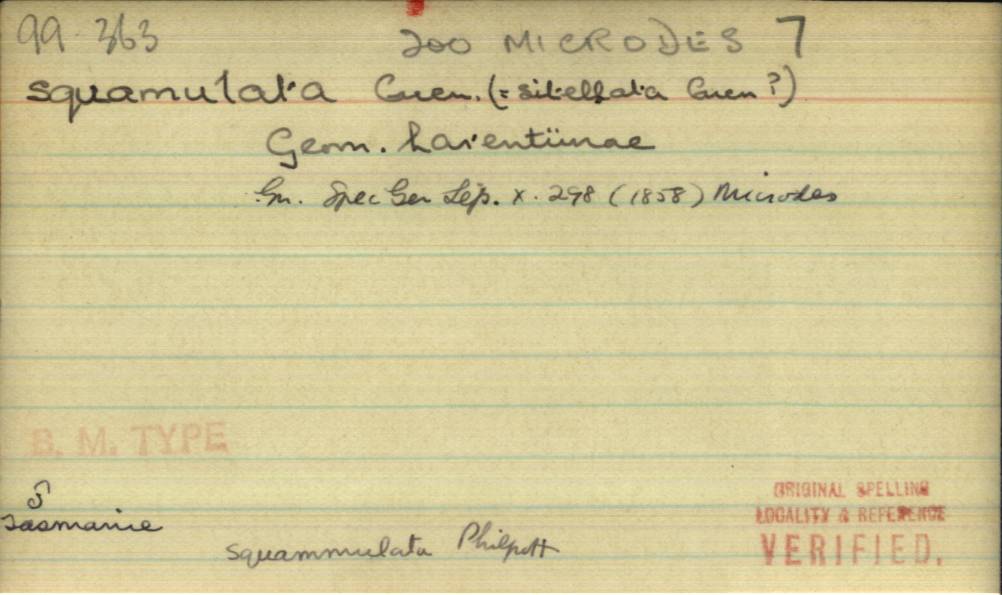 99.363 200 MICRODES 7
squamulata Guen. (= sitellata Guen?)
Geom. Larentiinae
Gn. Spec Gen Lep. x. 298 (1858) Microdes
B. M. TYPE
ORIGINAL SPELLING
LOCALITY & REFERENCE
VERIFIED.
♂
Tasmanie
squammulata Philpott